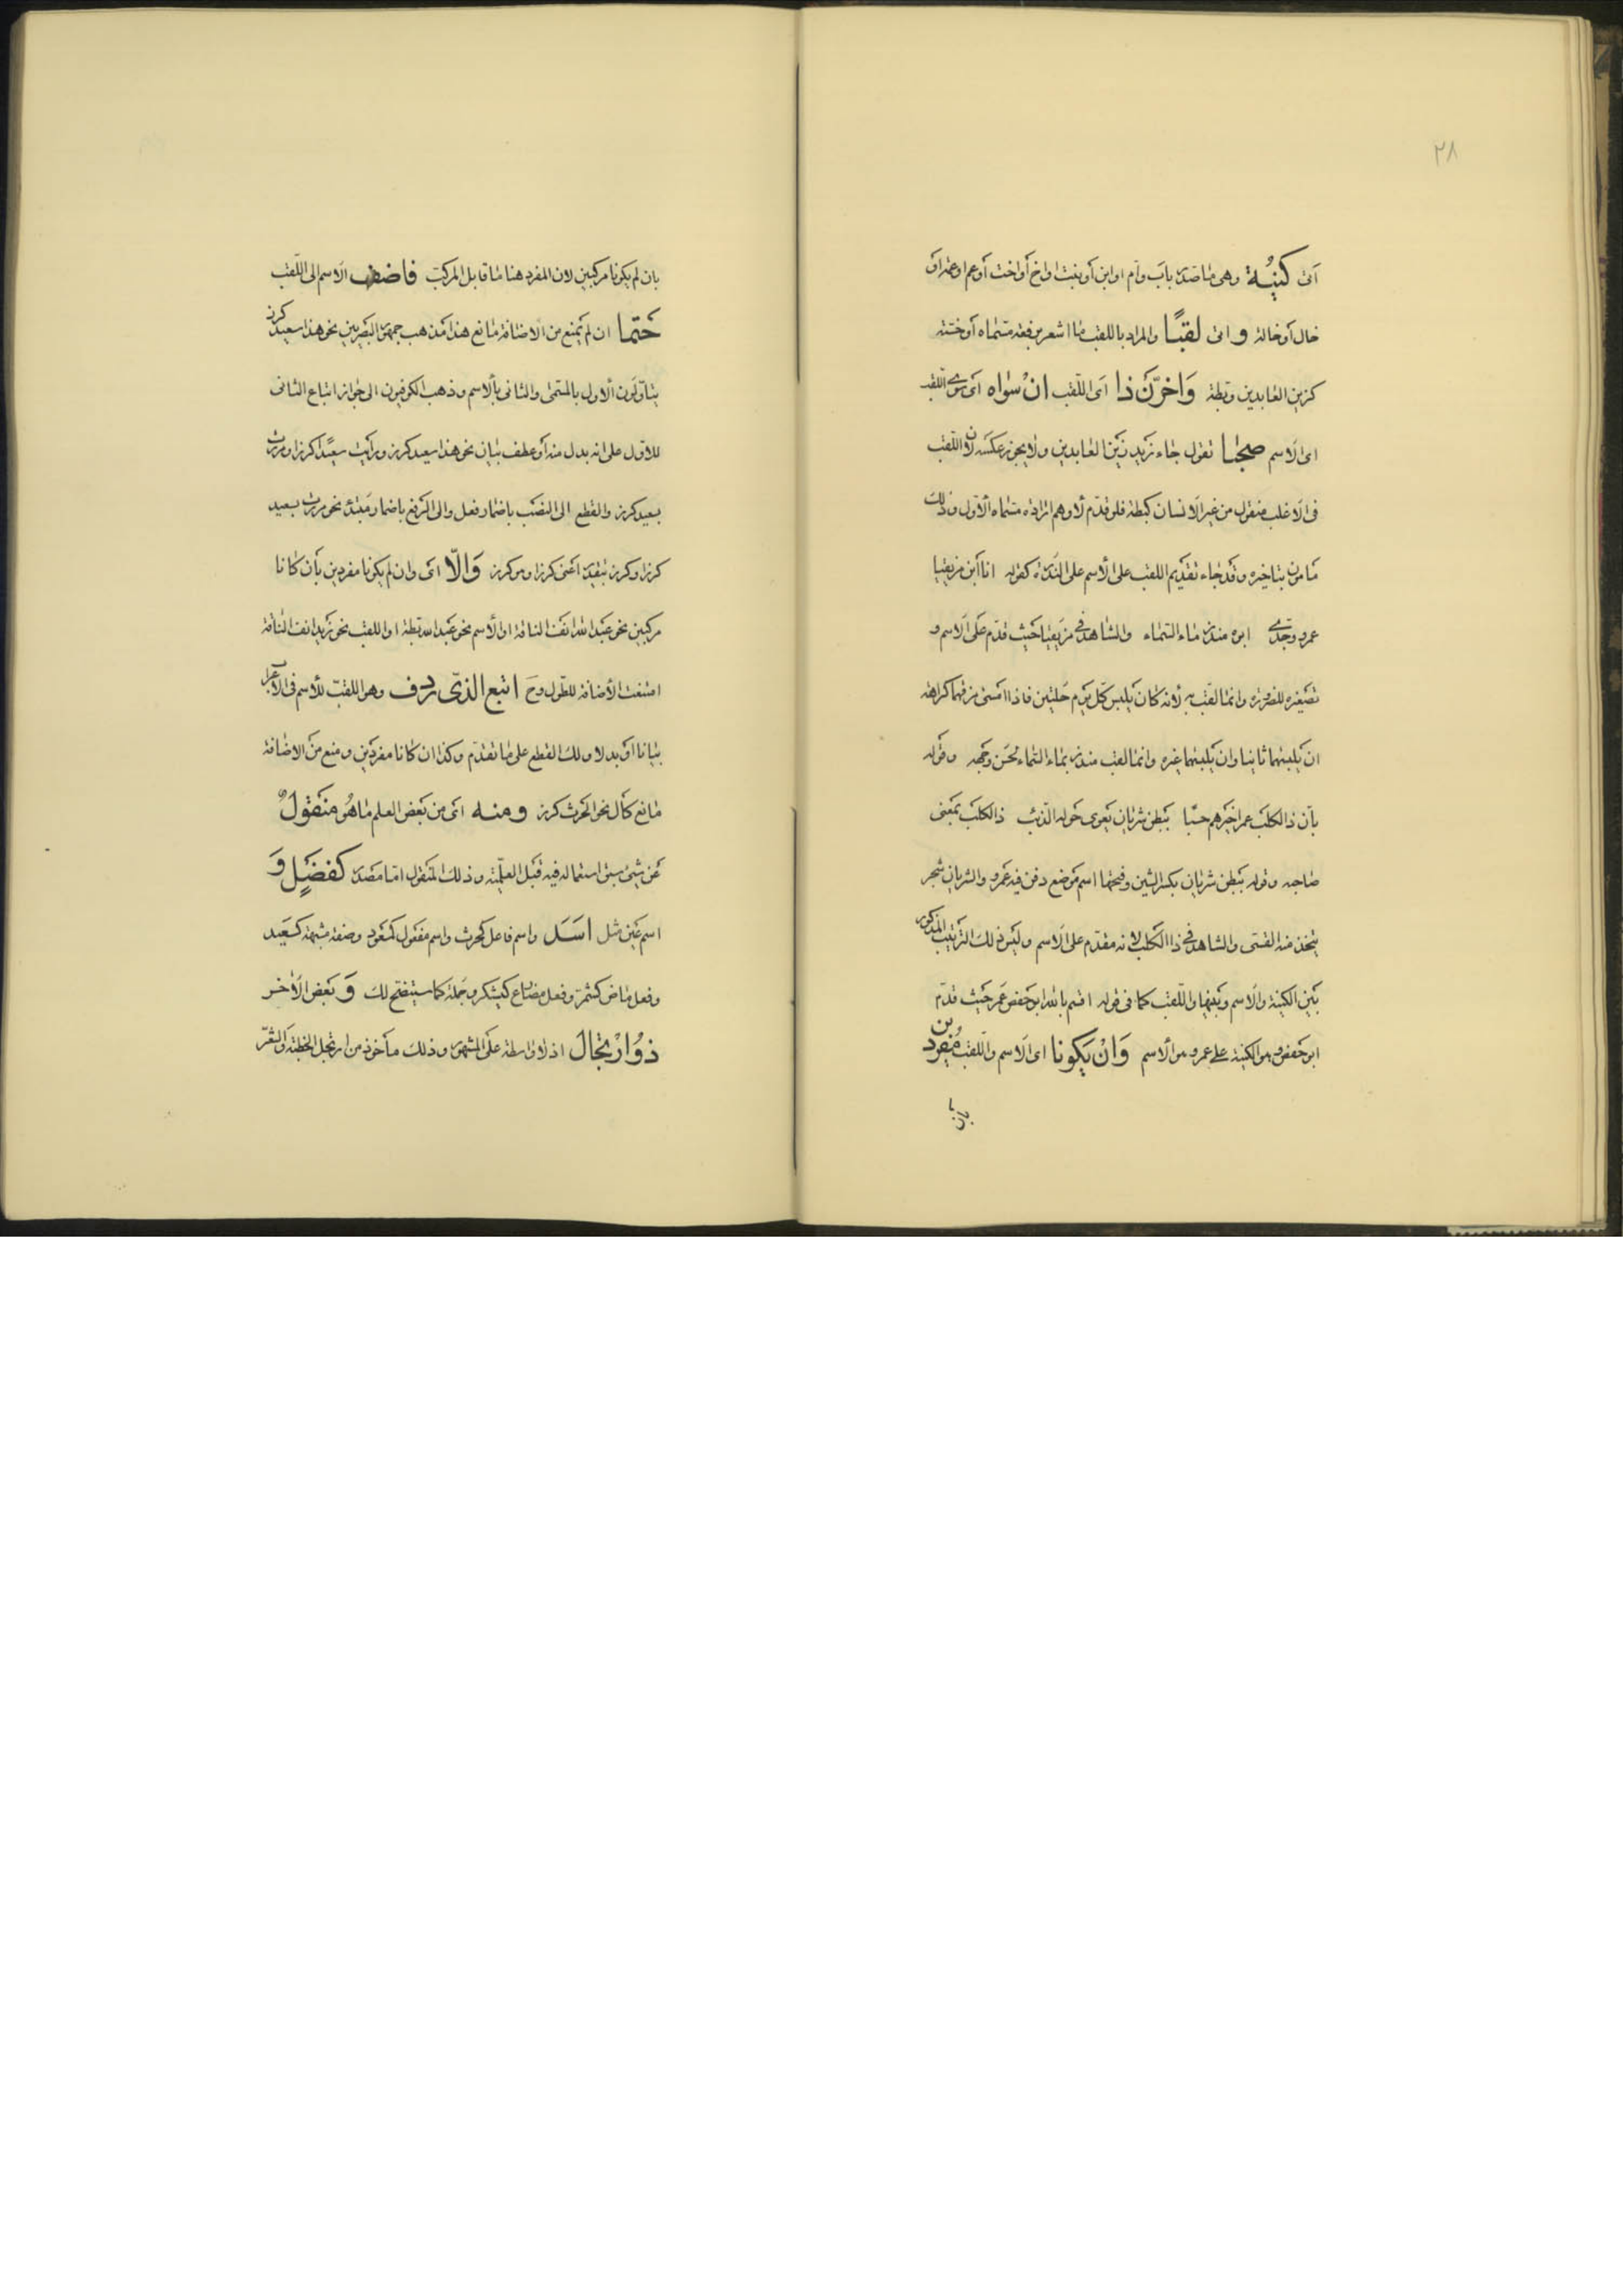 ٢٨
اتى كنية وهى ما صدر باب وام او ابن او بنت او اخ او اخت او عم او عمة او
خال او خالة و اتى لقبًا والمراد باللقب ما اشعر برفعة مسماه او خسته
كزين العابدين وبطة وَاخرّن ذا اى اللقب انْ سواه اى سوى اللقب
اى الاسم صحبا تقول جاء زيد زين العابدين ولا يجوز عكسه لان اللقب
فى الاغلب منقول من غير الانسان كبطة فلو قدم لاوهم ارادة مسماه الاول وذلك
مامون بتاخيره وقد جاء تقديم اللقب على الاسم على الندرة كقوله انا ابن مزيقيا
عمرو وجدى ابوه منذر ماء السماء والشاهد فى مزيقيا حيث قدم على الاسم و
تصغيره للضرورة وانما لقب به لانه كان يلبس كل يوم حلتين فاذا امسى مزقهما كراهة
ان يلبسهما ثانيا وان يلبسهما غيره وانما لقب منذر بماء السماء لحسن وجهه وقوله
بان ذا الكلب عمرا خيرهم حسبا ببطن شريان يعوى حوله الذئب ذا الكلب بمعنى
صاحبه وقوله ببطن شريان بكسر الشين وفتحها اسم موضع دفن فيه عمرو والشريان شجر
يتخذ منه القسى والشاهد فى ذا الكلب لانه مقدم على الاسم وليس ذلك الترتيب المذكور
بين الكنية والاسم وبينها واللقب كما فى قوله اقسم بالله ابو حفص عمر حيث قدم
ابو حفص وهو الكنية على عمر وهو الاسم وَانْ يَكونا اى الاسم واللقب مُفردين
بان
بان لم يكونا مركبين لان المفرد هنا ما قابل المركب فاضف الاسم الى اللقب
حَتما ان لم يمنع من الاضافة مانع هذا مذهب جمهور البصريين نحو هذا سعيد كرز
يتاولون الاول بالمسمى والثانى بالاسم وذهب الكوفيون الى جواز اتباع الثانى
للاول على انه بدل منه او عطف بيان نحو هذا سعيد كرز ورايت سعيدا كرزا ومررت
بسعيد كرز والقطع الى النصب باضمار فعل والى الرفع باضمار مبتدء نحو مررت بسعيد
كرزا وكرز بتقدير اعنى كرزا وهو كرز وَالّا اى وان لم يكونا مفردين بان كانا
مركبين نحو عبد الله انف الناقة او الاسم نحو عبد الله بطة او اللقب نحو زيد انف الناقة
امتنعت الاضافة للطول وح اتبع الذى ردف وهو اللقب للاسم فى الاعراب
بيانا او بدلا ولك القطع على ما تقدم وكذا ان كانا مفردين ومنع من الاضافة
مانع كال نحو الحرث كرز ومنه اى من بعض العلم ما هو منقولٌ
عن شىء سبق استعماله فيه قبل العلمية وذلك المنقول اما مصدر كفضلٍ وَ
اسم عين مثل اسَد واسم فاعل كحرث واسم مفعول كمسعود وصفة مشبهة كسعيد
وفعل ماض كشمر وفعل مضارع كيشكر وجملة كما ستتضح لك وَ بعض الاخر
ذوُ ارْتجال اذ لا واسطة على المشهور وذلك مأخوذ من ارتجل الخطبة والشعر